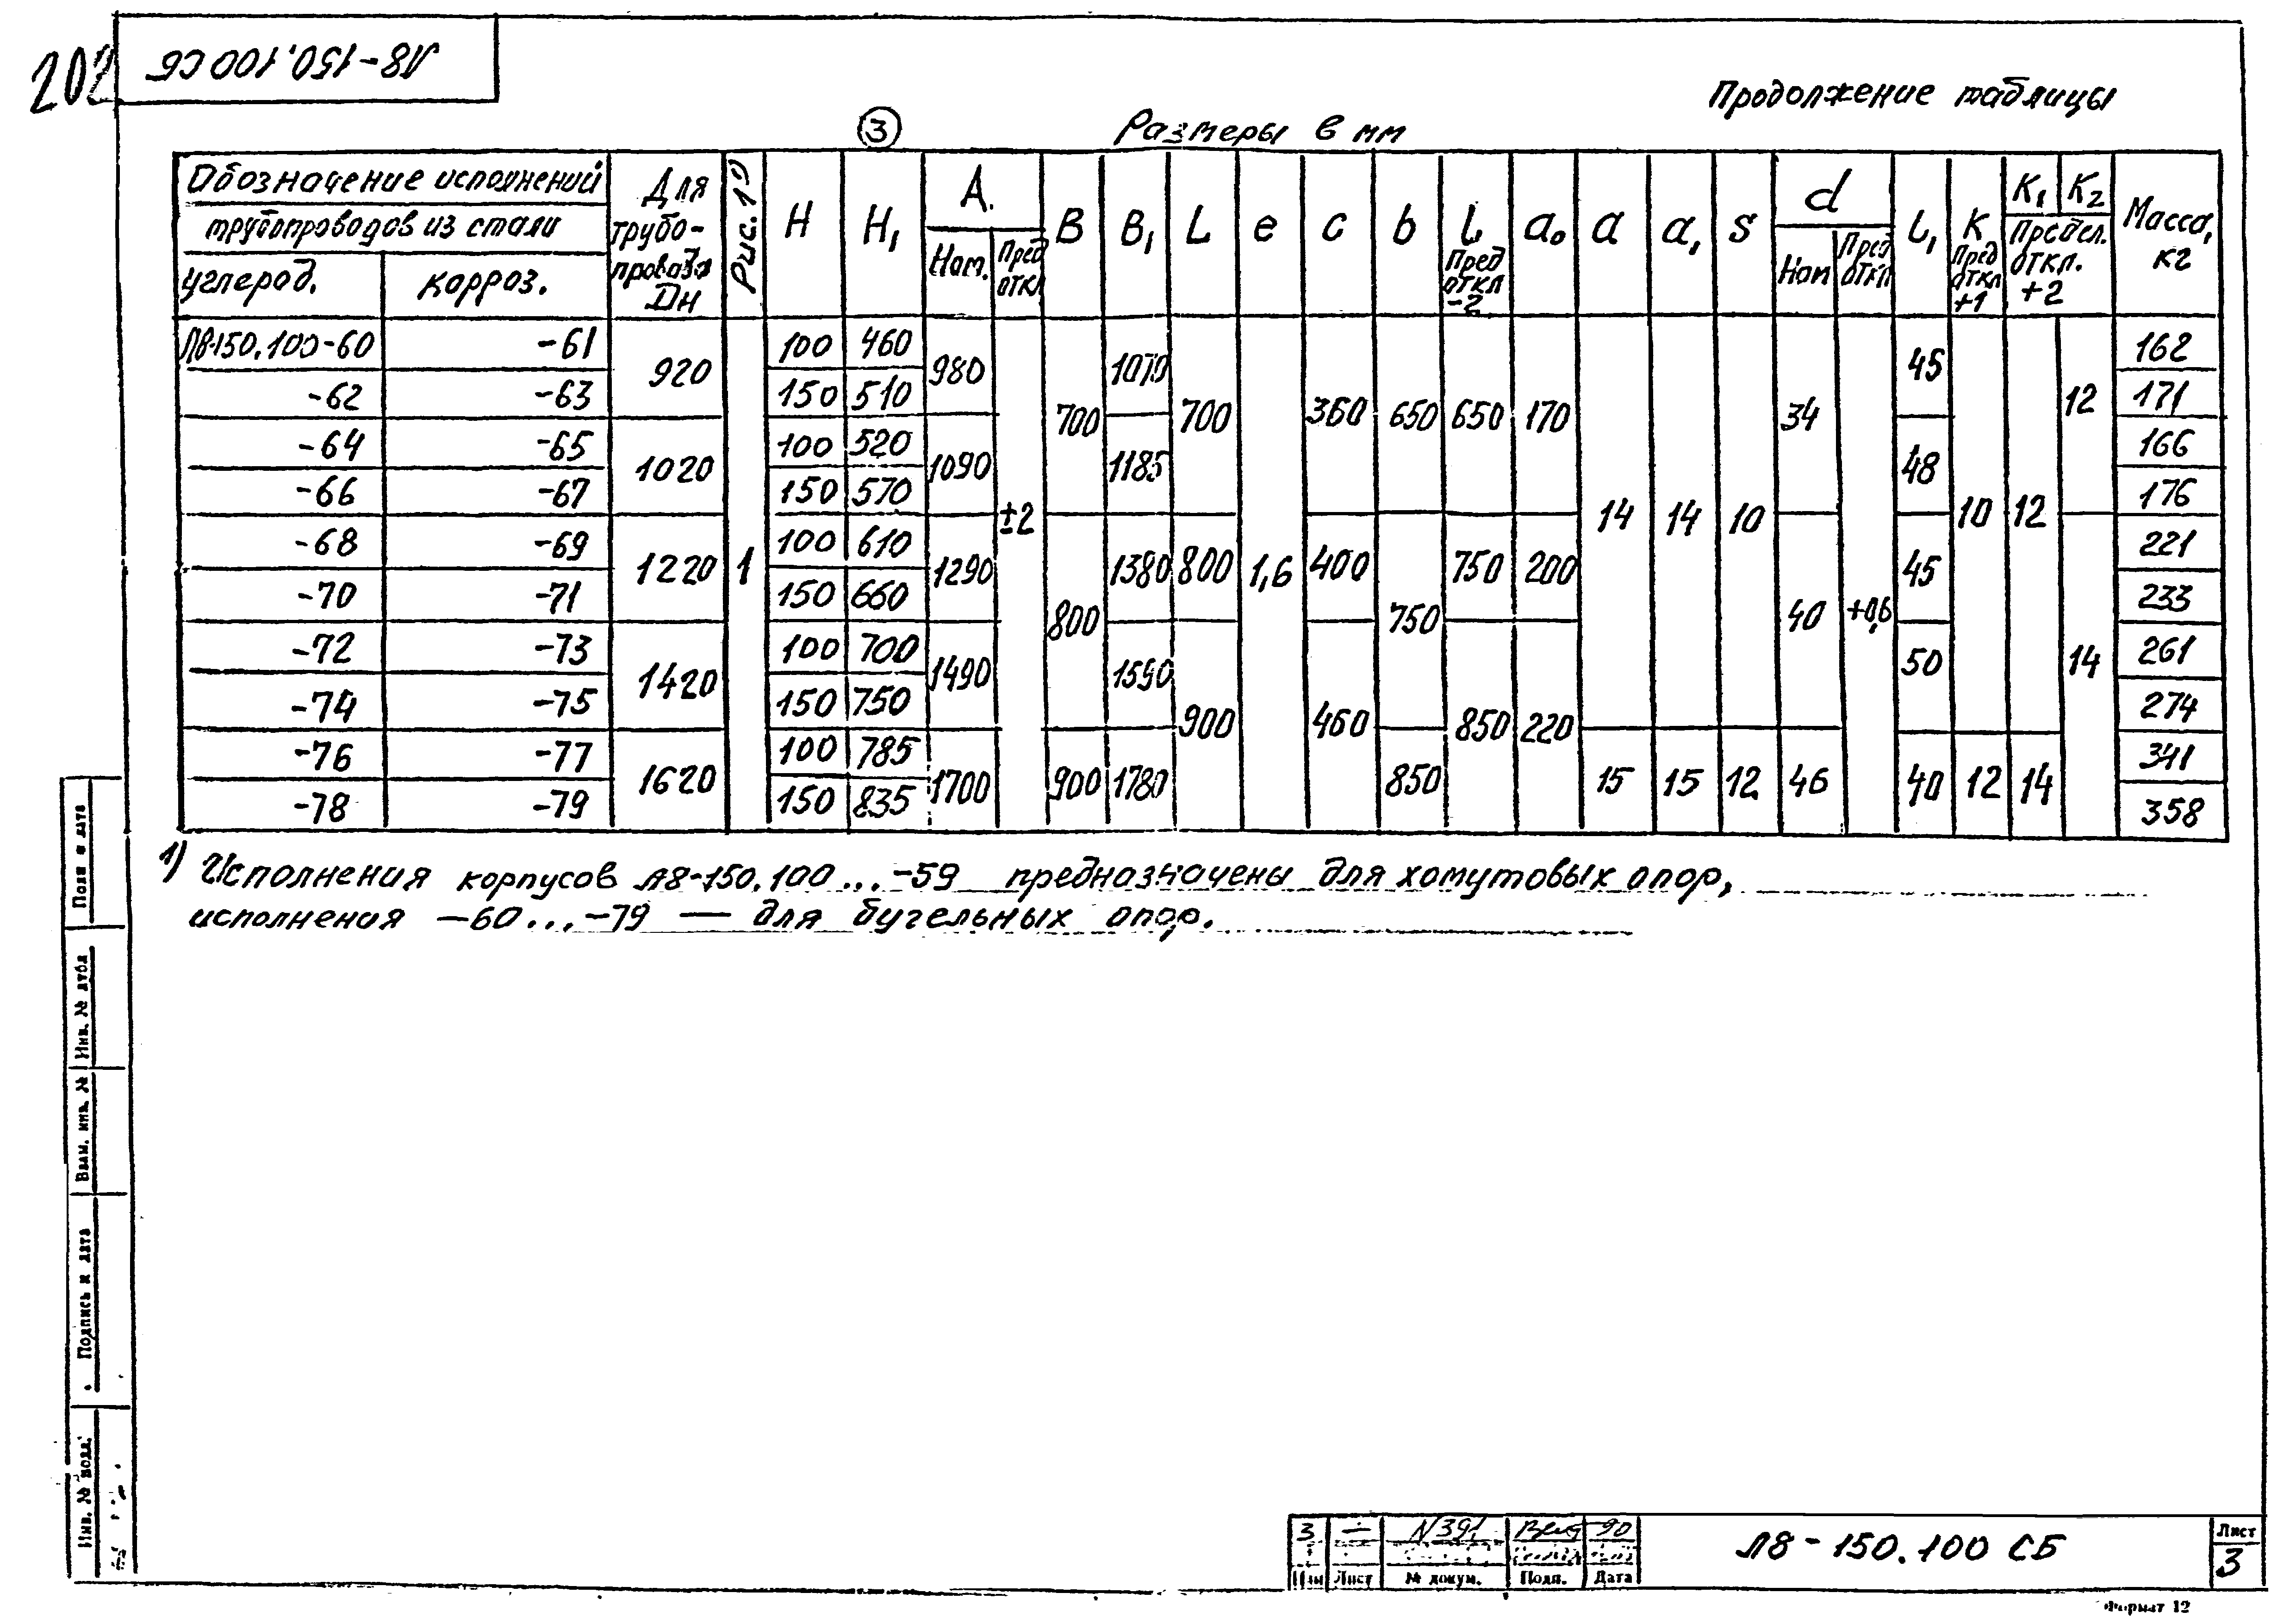 202
Л8-150.100 СБ
Продолжение таблицы
3 Размеры в мм
Обозначение исполнений трубопроводов из стали | Для трубопровода Дн | Рис. 1 1) | H | H1 | A | B | B1 | L | e | c | b | l Пред откл -2 | a0 | a | a1 | s | d | l1 | K Пред откл +1 | K1 | K2 | Масса, кг
углерод. | корроз. | Ном. | Пред откл | Ном | Пред откл | Предел. откл. +2
Л8-150.100-60 | -61 | 920 | 1 | 100 | 460 | 980 | ±2 | 700 | 1070 | 700 | 1,6 | 360 | 650 | 650 | 170 | 14 | 14 | 10 | 34 | +0,6 | 45 | 10 | 12 | 12 | 162
-62 | -63 | 150 | 510 | 171
-64 | -65 | 1020 | 100 | 520 | 1090 | 1185 | 48 | 166
-66 | -67 | 150 | 570 | 176
-68 | -69 | 1220 | 100 | 610 | 1290 | 800 | 1380 | 800 | 400 | 750 | 750 | 200 | 40 | 45 | 14 | 221
-70 | -71 | 150 | 660 | 233
-72 | -73 | 1420 | 100 | 700 | 1490 | 1590 | 900 | 460 | 850 | 220 | 50 | 261
-74 | -75 | 150 | 750 | 274
-76 | -77 | 1620 | 100 | 785 | 1700 | 900 | 1780 | 850 | 15 | 15 | 12 | 46 | 40 | 12 | 14 | 341
-78 | -79 | 150 | 835 | 358
1) Исполнения корпусов Л8-150.100...-59 предназначены для хомутовых опор,
исполнения -60...-79 — для бугельных опор.
Подп и дата
Инв. № дубл
Взам. инв. №
Подпись и дата
Инв. № подл.
3 — N391 90
Изм Лист № докум. Подп. Дата
Л8-150.100 СБ
Лист
3
Формат 12